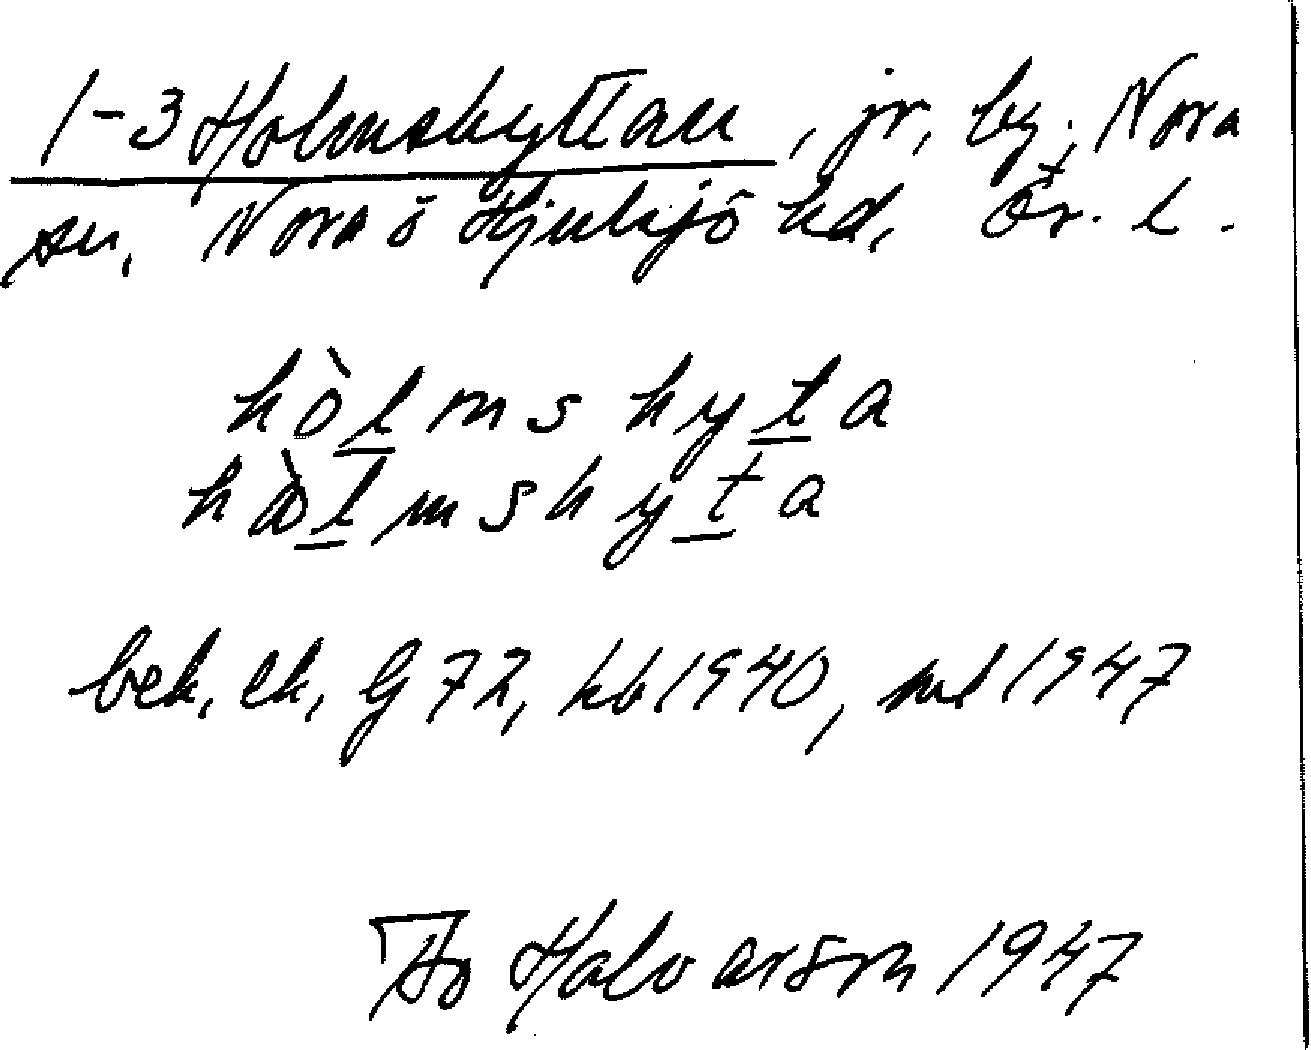 1-3 Holmshyttan, jr, by, Nora
sn, Nora o Hjulsjö hd, Ör. l.
hòlmshyta
hàlmshyta
bek, ek, G 72, kb 1940, ml 1947
Halvarson 1947